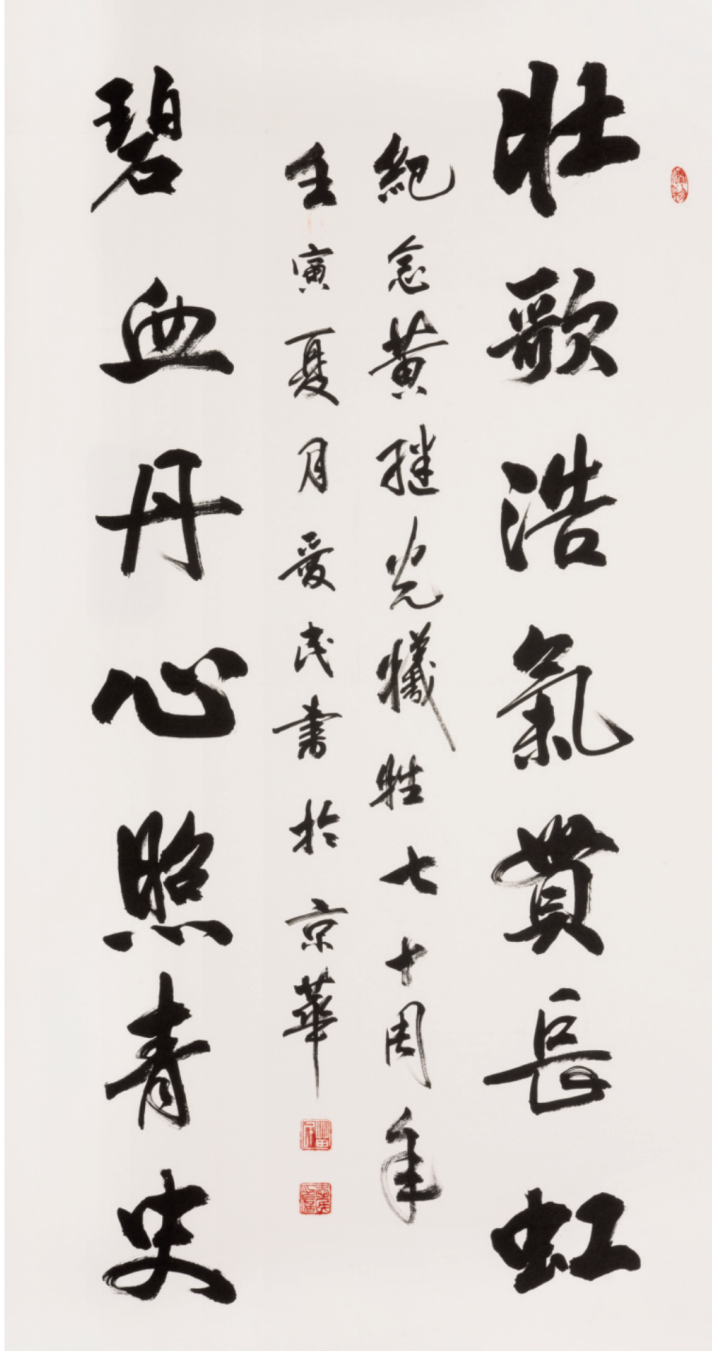 壯歌浩氣貫長虹
紀念黃繼光犧牲七十周年
壬寅夏月愛民書於京華
碧血丹心照青史